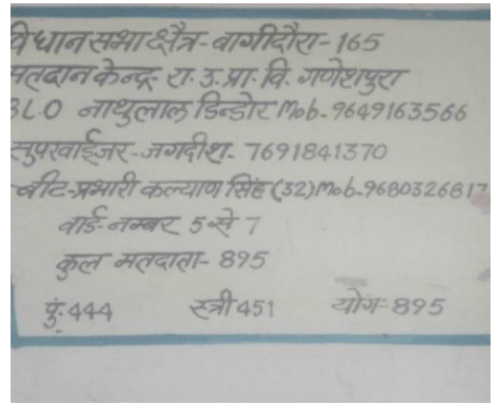 विधानसभा क्षैत्र- बागीदौरा-165
मतदान केन्द्र- रा. उ. प्रा. वि. गणेशपुरा
BLO नाथुलाल डिन्डोर Mob-9649163566
सुपरवाईजर-जगदीश- 7691841370
बीट-प्रभारी कल्याण सिंह (32) Mob-9680326817
वार्ड-नम्बर 5 से 7
कुल मतदाता- 895
पुं.444 स्त्री 451 योग-895